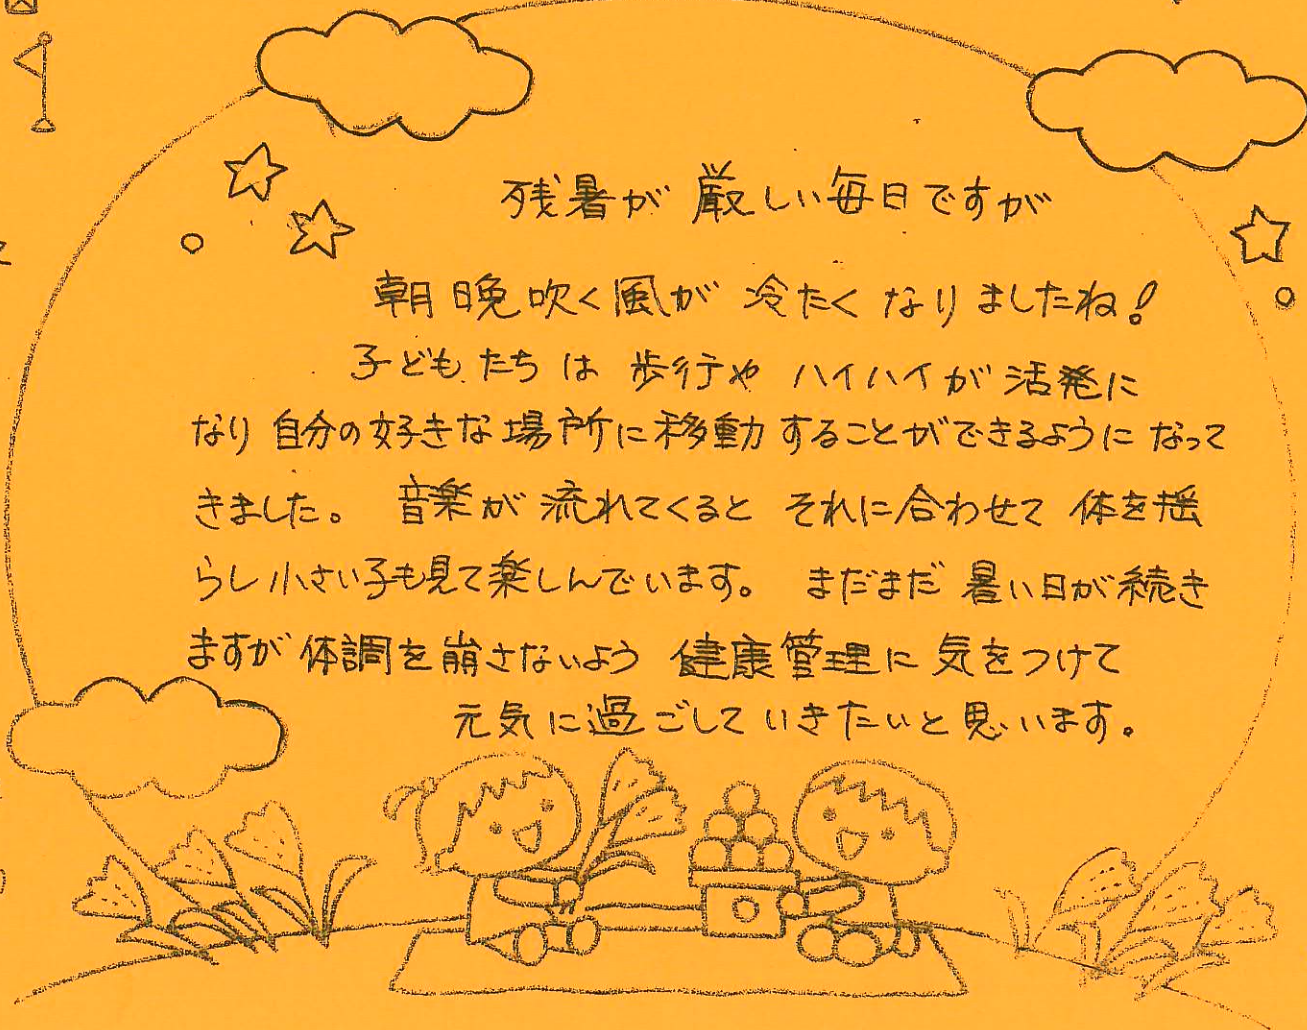 残暑が厳しい毎日ですが
朝晩吹く風が冷たくなりましたね!
子どもたちは歩行やハイハイが活発に
なり自分の好きな場所に移動することができるようになって
きました。 音楽が流れてくるとそれに合わせて体を揺
らし小さい子も見て楽しんでいます。 まだまだ暑い日が続き
ますが体調を崩さないよう健康管理に気をつけて
元気に過ごしていきたいと思います。